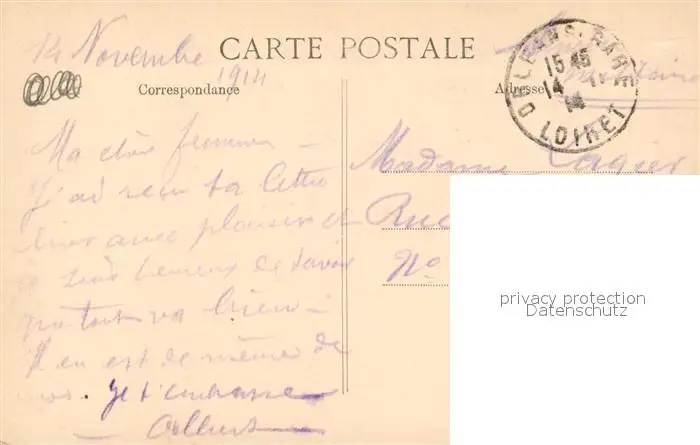 14 Novembre
1914
CARTE POSTALE
Correspondance
Adresse
militaire
ORLEANS-GARE
15 45
14
LOIRET
Ma chère femme
J'ai reçu ta lettre
hier avec plaisir et
je suis heureux de savoir
que tout va bien
Il en est de même de
moi. Je t'embrasse
Albert
Madame Lagier
Rue
No
privacy protection
Datenschutz